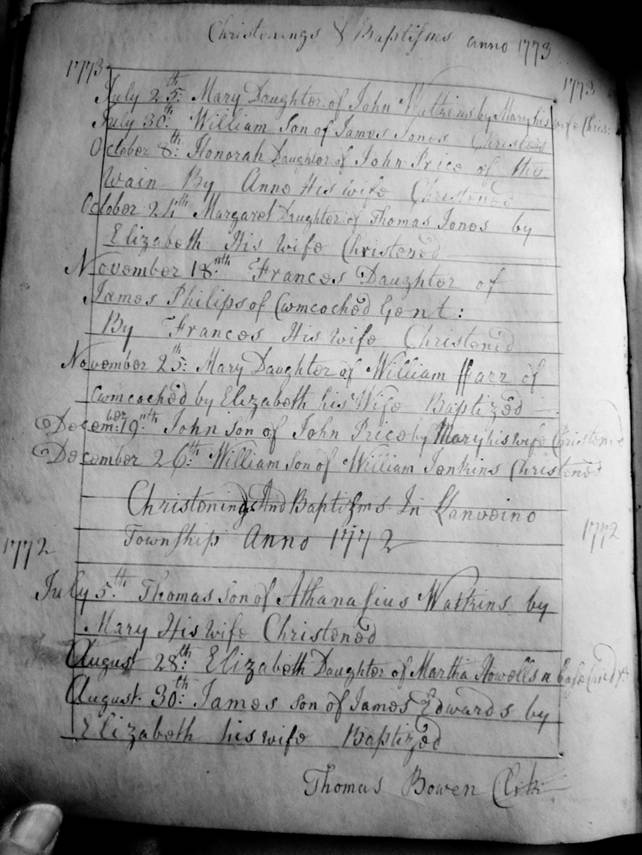 Christenings & Baptisms anno 1773
1773 1773
July 25th: Mary Daughter of John Watkins by Mary his wife Chris:
July 30th: William Son of James Jones Christened
October 8th: Honorah Daughter of John Price of the
Wain By Anne His wife Christened
October 24th Margaret Daughter of Thomas Jones by
Elizabeth His Wife Christened
November 18nth Frances Daughter of
James Philips of Cwmcoched Gent:
By Frances His Wife Christened
November 25th: Mary Daughter of William Parr of
Cwmcoched by Elizabeth his Wife Baptized
December 19nth John son of John Price by Mary his wife Christened
December 26th William Son of William Jenkins Christened
Christenings And Baptisms In Llanveino
Township Anno 1772
1772 1772
July 5th Thomas son of Athanasius Watkins by
Mary His Wife Christened
August 28th: Elizabeth Daughter of Martha Howells
August 30th: James son of James Edwards by
Elizabeth his wife Baptized
Thomas Bowen Clk: